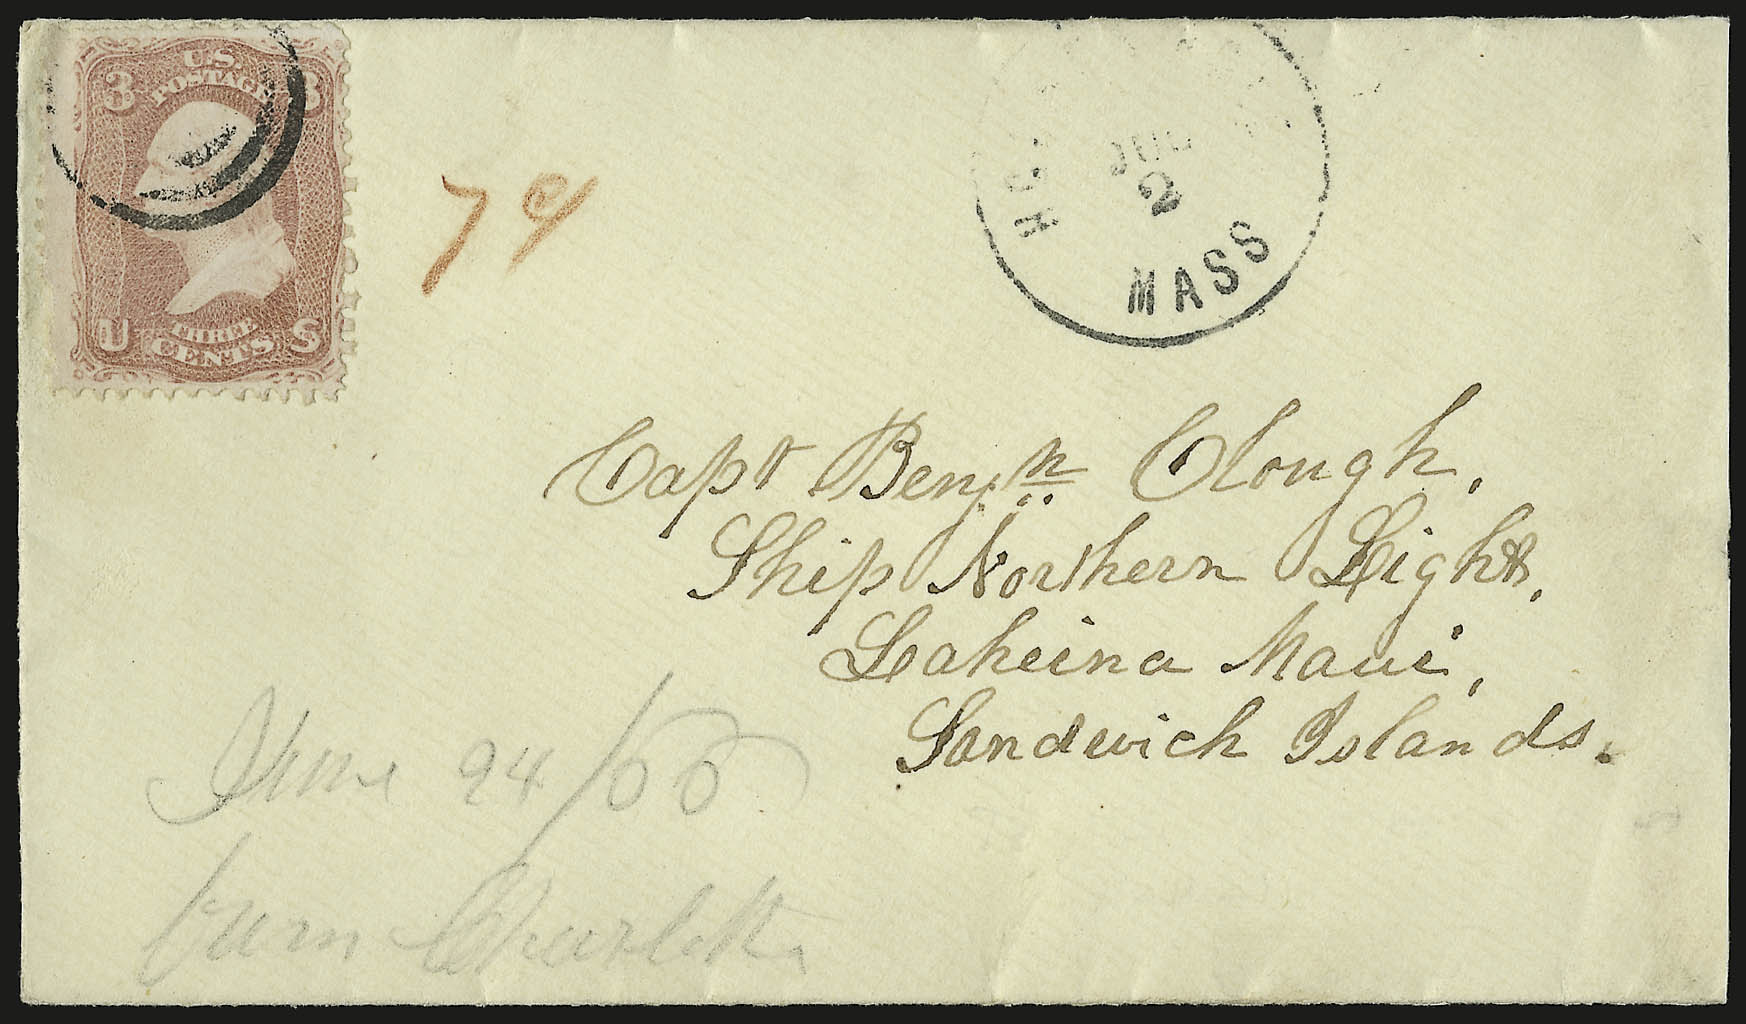 3 U.S. 3
POSTAGE
U THREE S
CENTS
JUL
2
MASS
Capt Benjn Clough,
Ship Northern Light,
Laheina Maui,
Sandwich Islands.
June 24/66
from Charlotte